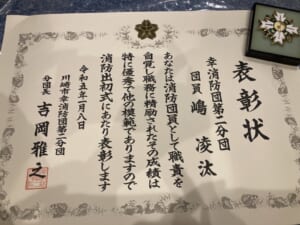 表彰状
幸消防団第二分団
団員 嶋 凌汰
あなたは消防団員として職責を
自覚し職務に精励されその成績は
特に優秀で他の模範でありますので
消防出初式にあたり表彰します
令和五年一月八日
川崎市幸消防団第二分団
分団長 吉岡雅之